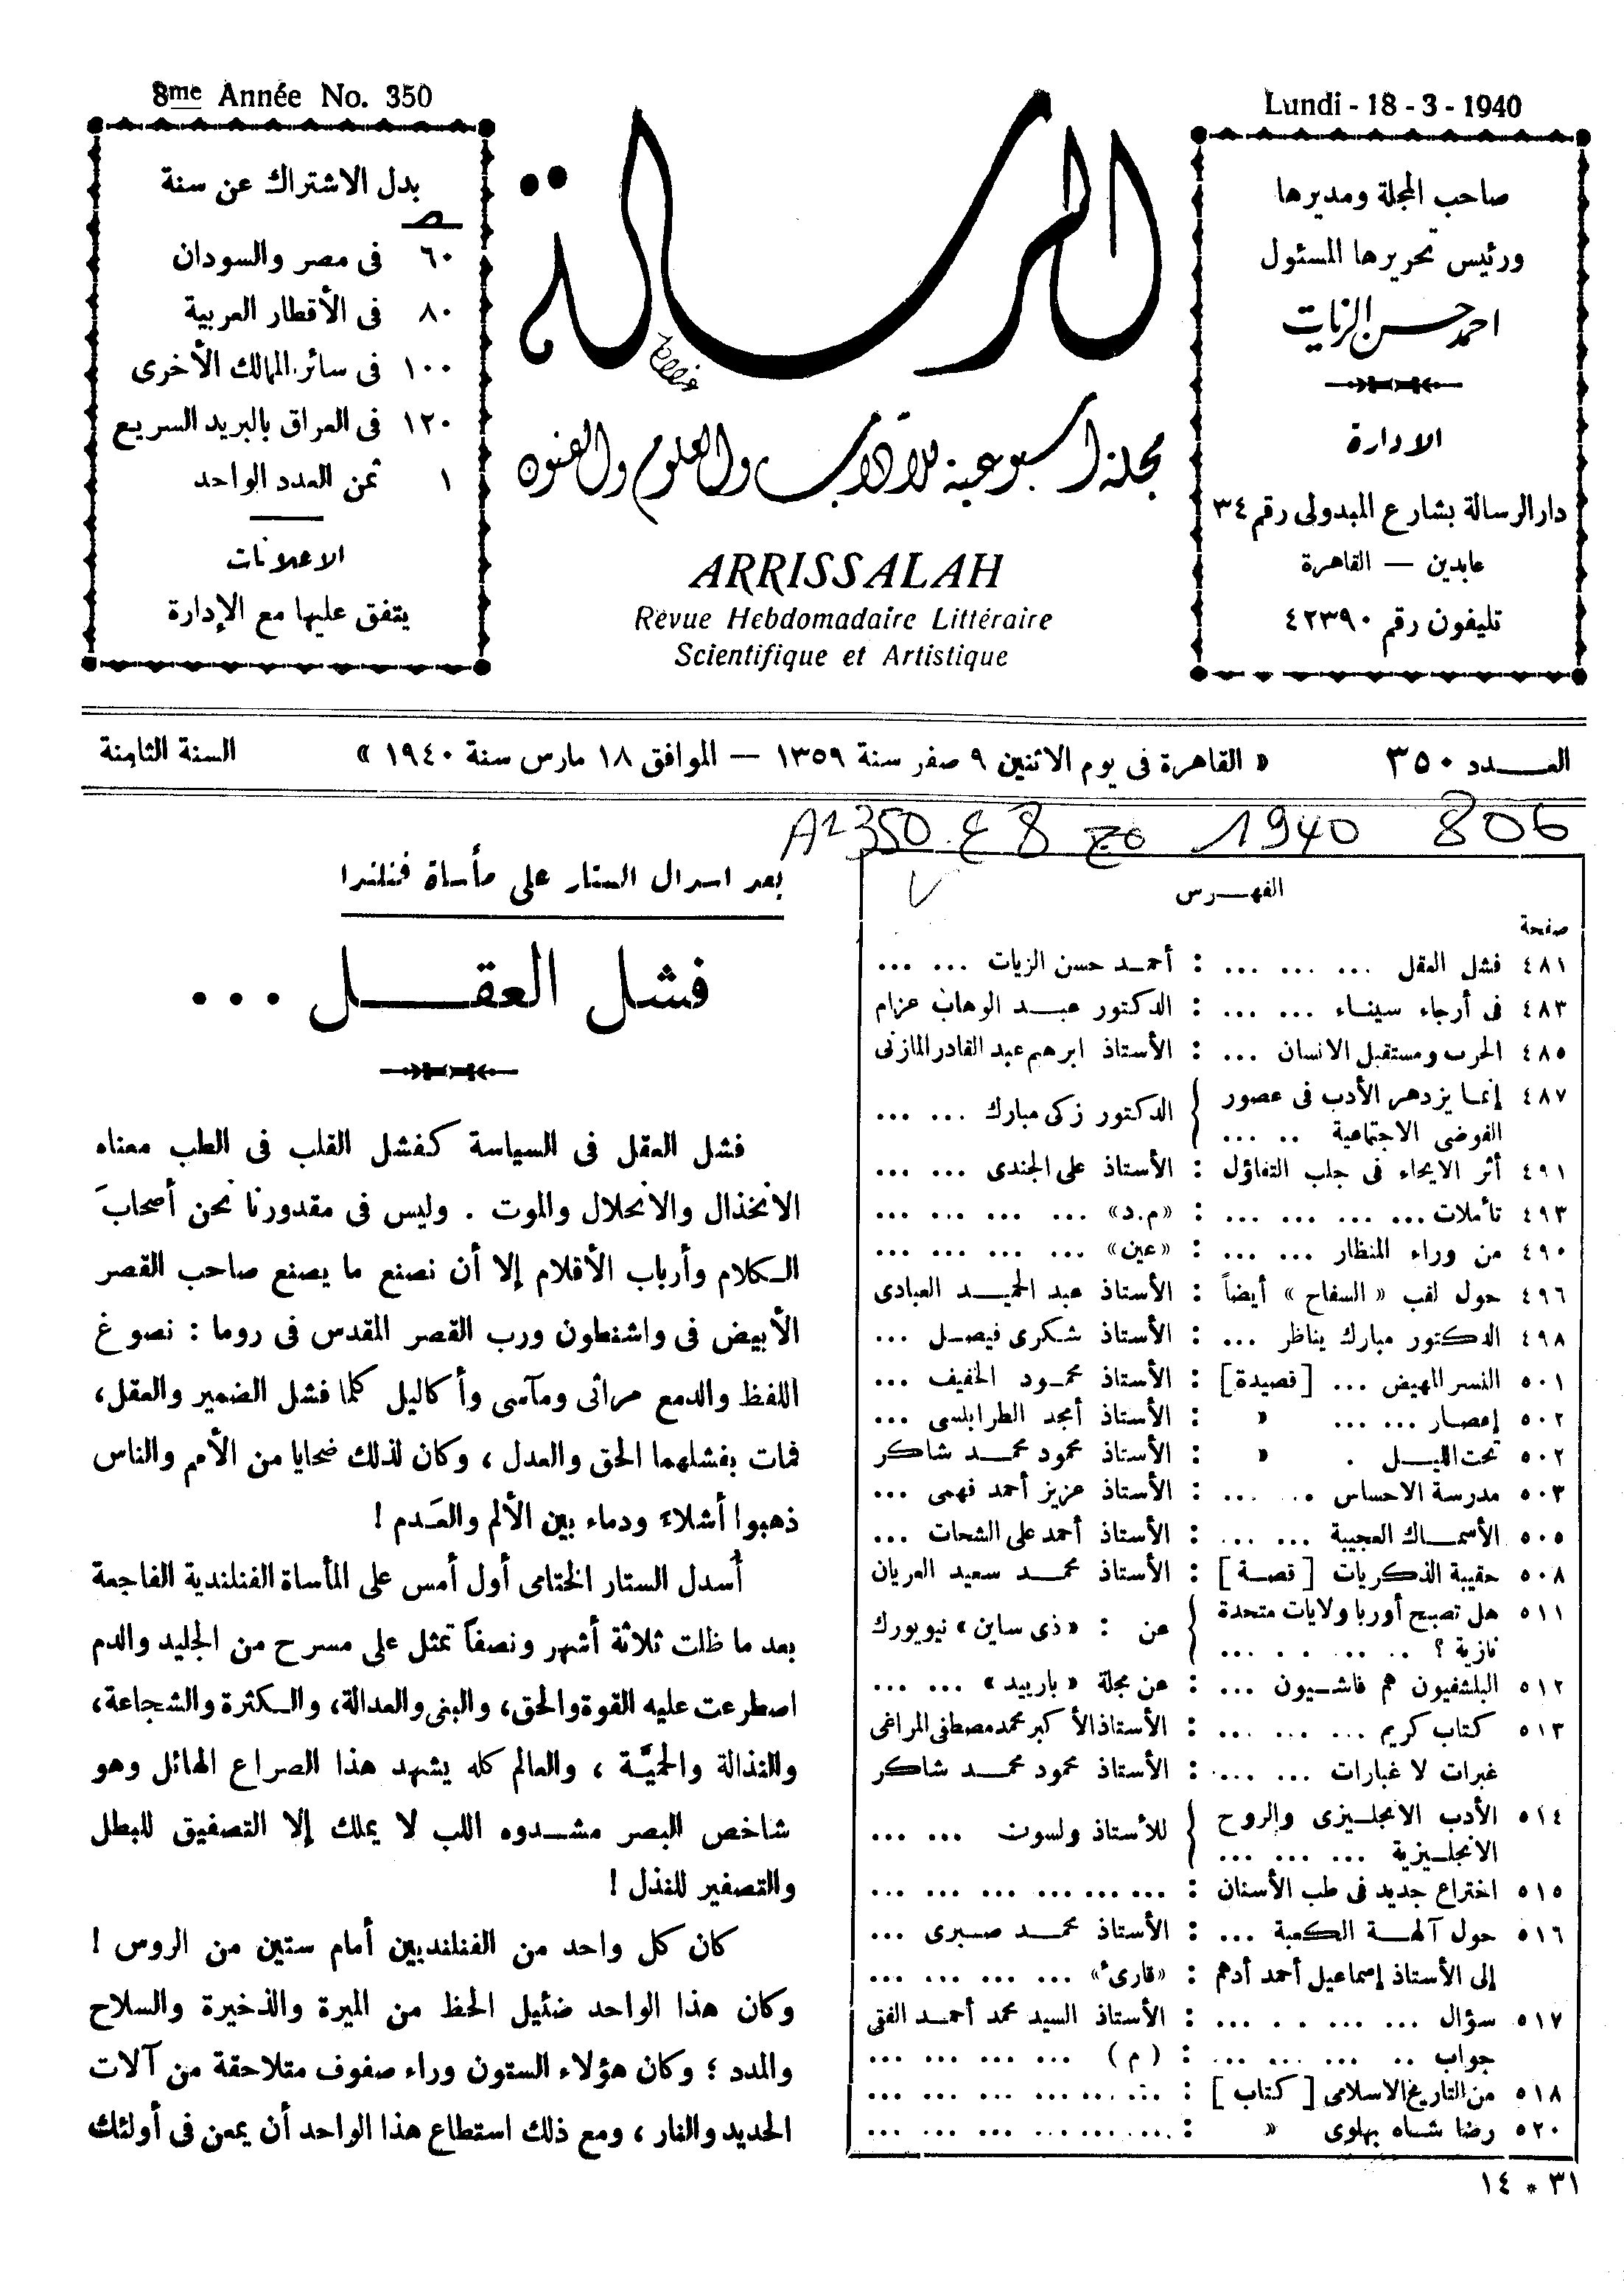 8me Année No. 350
Lundi - 18 - 3 - 1940
صاحب المجلة ومديرها
ورئيس تحريرها المسئول
احمد حسن الزيات
الادارة
دار الرسالة بشارع المبدولى رقم ٣٤
عابدين — القاهرة
تليفون رقم ٤٢٣٩٠
الرسالة
مجلة أسبوعية للآداب والعلوم والفنون
ARRISSALAH
Revue Hebdomadaire Littéraire
Scientifique et Artistique
بدل الاشتراك عن سنة
ص
٦٠ فى مصر والسودان
٨٠ فى الأقطار العربية
١٠٠ فى سائر الممالك الأخرى
١٢٠ فى العراق بالبريد السريع
١ ثمن العدد الواحد
الاعلانات
يتفق عليها مع الإدارة
العـــدد ٣٥٠ « القاهرة فى يوم الاثنين ٩ صفر سنة ١٣٥٩ — الموافق ١٨ مارس سنة ١٩٤٠ » السنة الثامنة
1940 806
الفهـــرس
صفحة
٤٨١ فشل العقل ... ... ... : أحمـد حسن الزيات ... ...
٤٨٣ فى أرجاء سينـاء ... ... : الدكتور عبـد الوهاب عزام
٤٨٥ الحرب ومستقبل الانسان ... : الأستاذ ابرهيم عبد القادر المازنى
٤٨٧ إنمـا يزدهر الأدب فى عصور
الفوضى الاجتماعية .. ... } الدكتور زكى مبارك ... ...
٤٩١ أثر الايحاء فى جلب التفاؤل : الأستاذ على الجندى ... ...
٤٩٣ تأملات ... ... ... ... : «م.د» ... ... ... ...
٤٩٠ من وراء المنظار ... ... : «عين» ... ... ... ...
٤٩٦ حول لقب « السفاح » أيضاً : الأستاذ عبد الحميـد العبادى
٤٩٨ الدكتور مبارك يناظر ... : الأستاذ شكرى فيصـل ...
٥٠١ النسر المهيض ... [قصيدة] : الأستاذ محمـود الخفيف ...
٥٠٢ إعصـار ... ... » : الأستاذ أمجد الطرابلسى ...
٥٠٢ تحت الليـل . » : الأستاذ محمود محمـد شاكر
٥٠٣ مدرسة الاحساس .. ... : الأستاذ عزيز أحمد فهمى ...
٥٠٥ الأسمـاك العجيبة ... ... : الأستاذ أحمد على الشحات ...
٥٠٨ حقيبة الذكريات [ قصـة ] : الأستاذ محمـد سعيد العريان
٥١١ هل تصبح أوربا ولايات متحدة
نازية ؟ .. ... . ... } عن : «ذى ساين» نيويورك
٥١٢ البلشفيون هم فاشـيون ... : عن مجلة « باربيد » ... ...
٥١٣ كتاب كريم ... ... ... : الأستاذ الأكبر محمد مصطفى المراغى
غبرات لا غبارات ... ... : الأستاذ محمود محمـد شاكر
٥١٤ الأدب الانجلـيزى والروح
الانجلـيزية ... ... ... } للأستاذ ولسون ... ...
٥١٥ اختراع جديد فى طب الأسنان : ... ... ... ... ... ...
٥١٦ حول آلهـة الكعبة ... : الأستاذ محمـد صـبرى ...
إلى الأستاذ إسماعيل أحمد أدهم : «قارىء» ... ... ... ...
٥١٧ سؤال ... ... . . ... : الأستاذ السيد محمد أحمـد الفقى
جواب .. ... ... ... : (م) ... ... ... ...
٥١٨ من التاريخ الاسلامى [ كتاب ] : ... ... ... ... ... ...
٥٢٠ رضا شـاه بهلوى » : ... ... ... ... ... ...
بعد اسدال الستار على مأساة فنلندا
فشل العقـــل ...
فشل العقل فى السياسة كفشل القلب فى الطب معناه
الانخذال والانحلال والموت . وليس فى مقدورنا نحن أصحابَ
الكلام وأرباب الأقلام إلا أن نصنع ما يصنع صاحب القصر
الأبيض فى واشنطون ورب القصر المقدس فى روما : نصوغ
اللفظ والدمع مراثى ومآسى وأكاليل كلما فشل الضمير والعقل،
فمات بفشلهما الحق والعدل ، وكان لذلك ضحايا من الأمم والناس
ذهبوا أشلاء ودماء بين الألم والعَـدم !
أُسدل الستار الختامى أول أمس على المأساة الفنلندية الفاجعة
بعد ما ظلت ثلاثة أشهر ونصفاً تمثل على مسرح من الجليد والدم
اصطرعت عليه القوة والحق، والبنى والعدالة، والكثرة والشجاعة،
والنذالة والحميَّـة ، والعالم كله يشهد هذا الصراع الهائل وهو
شاخص البصر مشـدوه اللب لا يملك إلا التصفيق للبطل
والتصفير للنذل !
كان كل واحد من الفنلنديين أمام ستين من الروس !
وكان هذا الواحد ضئيل الحظ من الميرة والذخيرة والسلاح
والمدد ؛ وكان هؤلاء الستون وراء صفوف متلاحقة من آلات
الحديد والنار ، ومع ذلك استطاع هذا الواحد أن يمعن فى أولئك
٣١ * ١٤